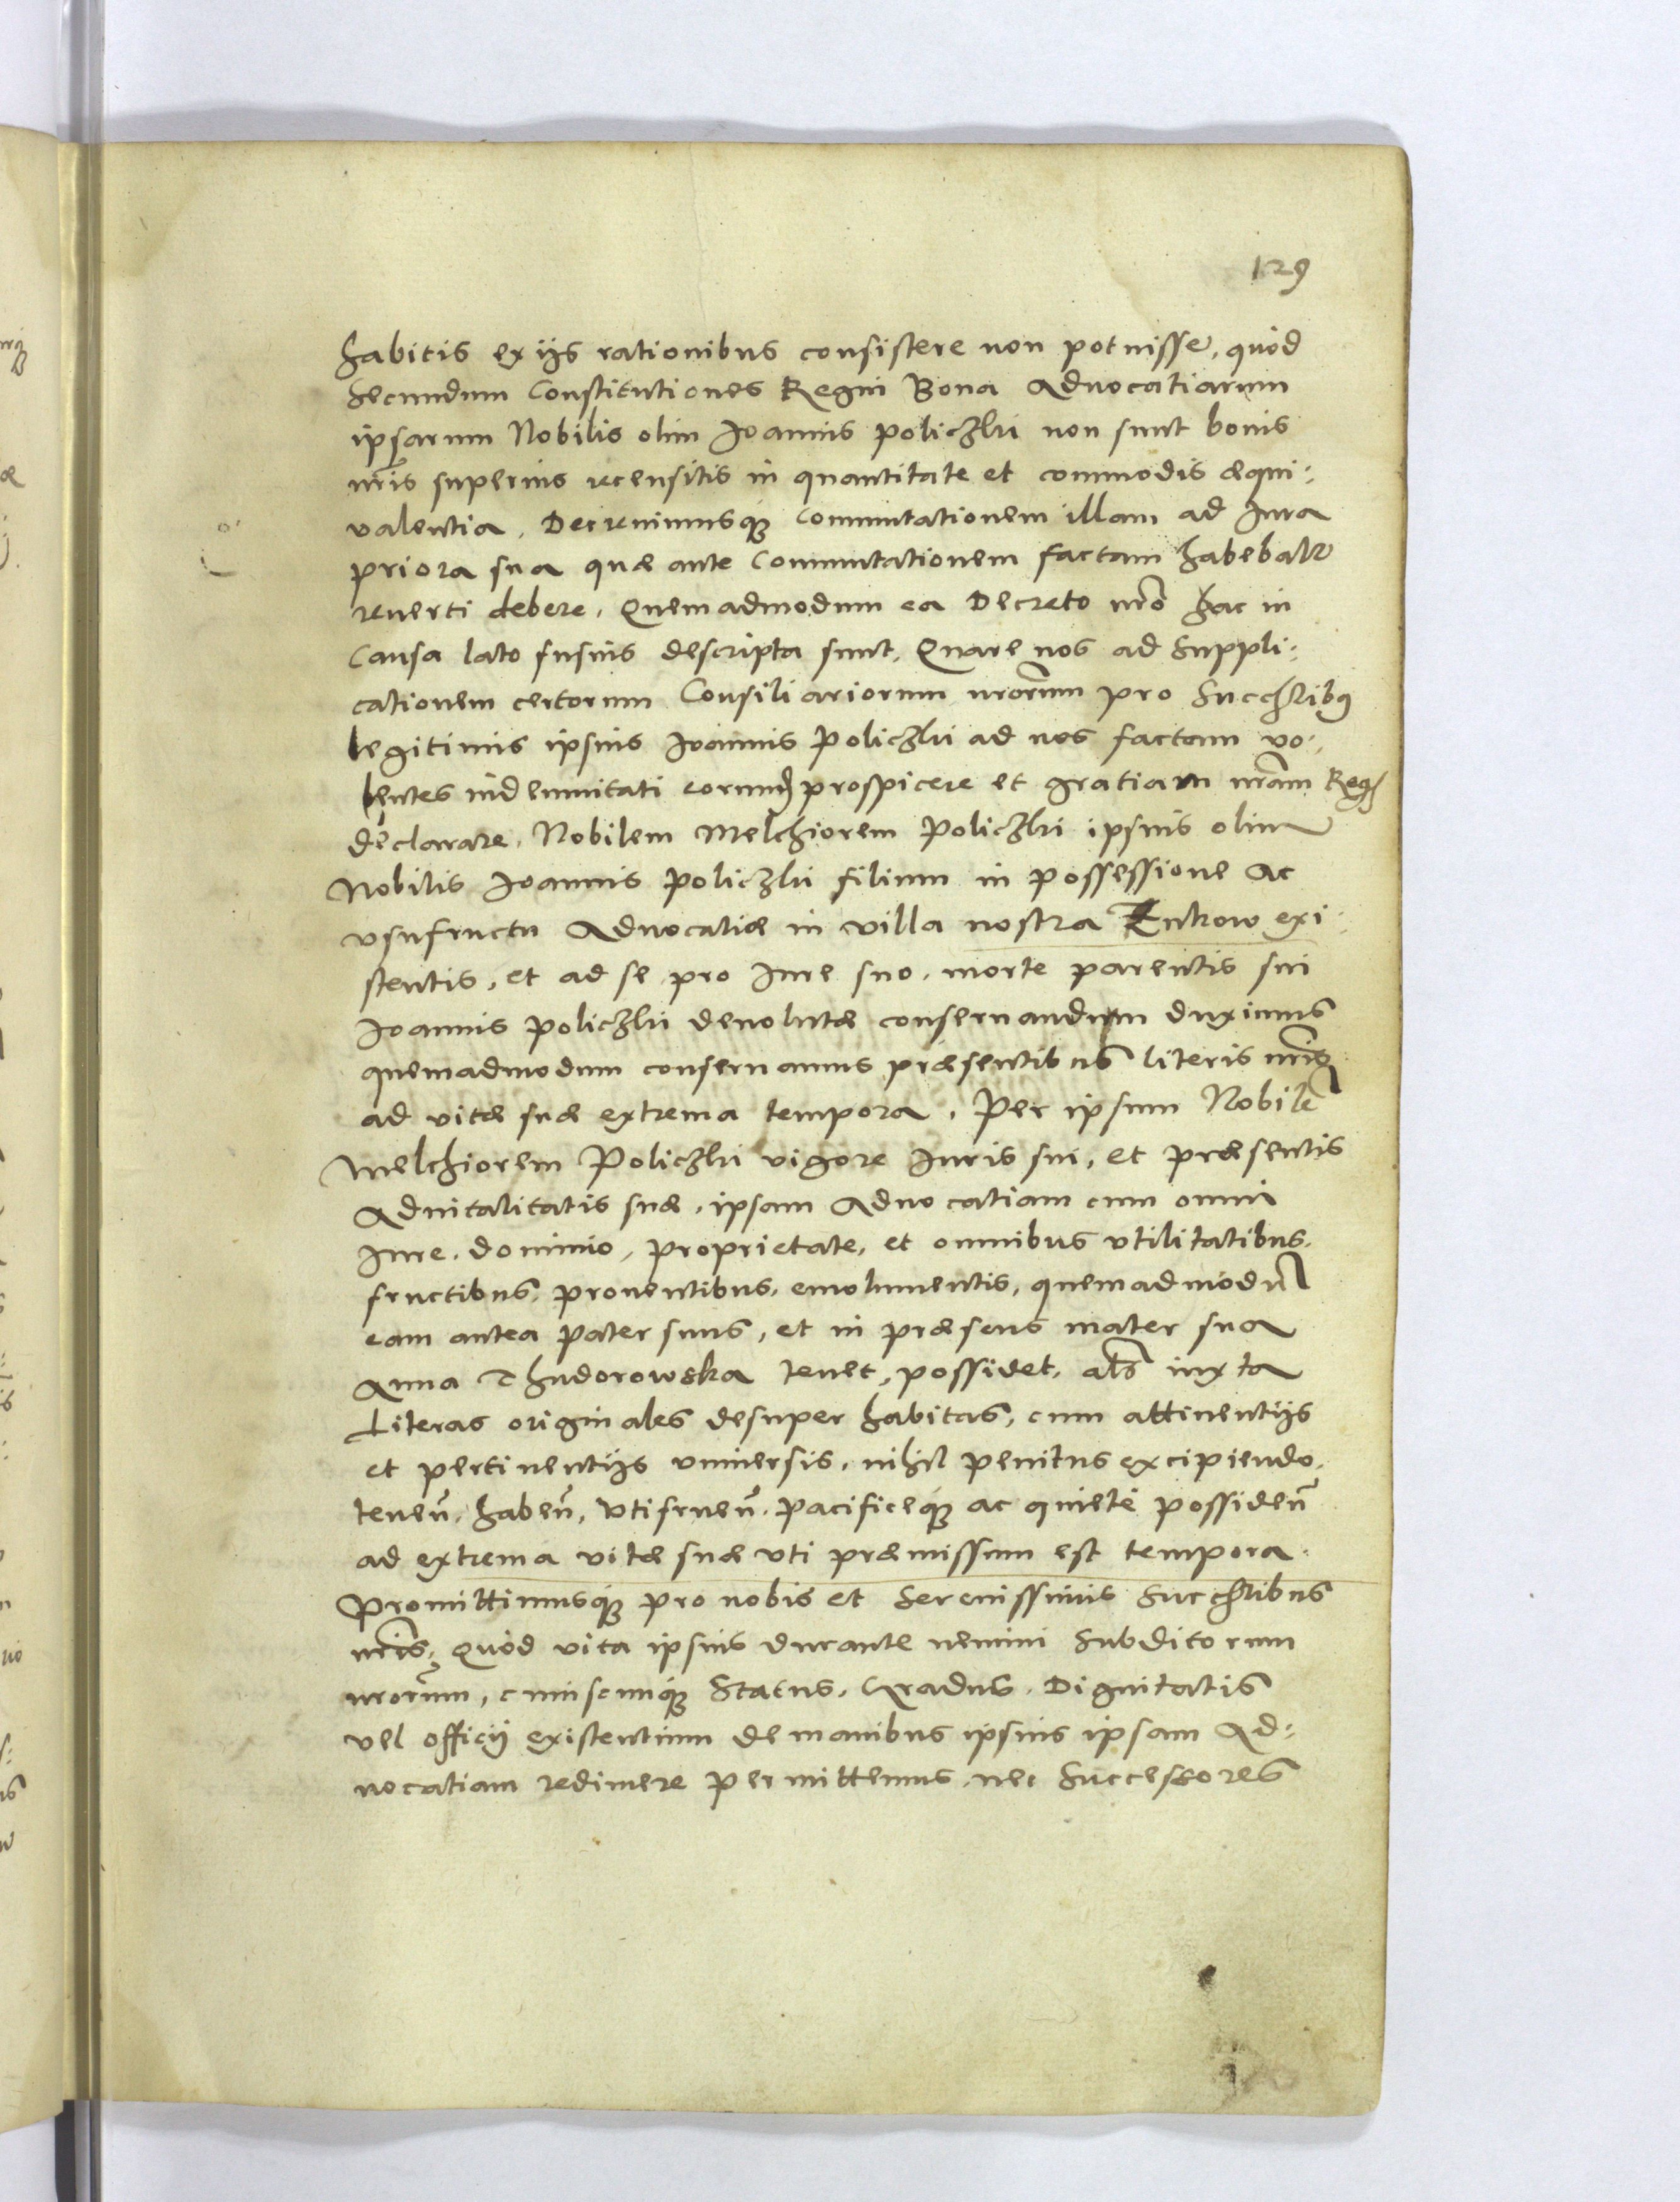 129
habitis ex ijs rationibus consistere non potuisse, quòd
secundum Constitutiones Regni Bona Aduocatiarum
ipsarum Nobilis olim Ioannis Policzki non sunt bonis
nr̃is superius recensitis in quantitate et commodis æqui:
valentia, Decreuimusq3 Commutationem illam ad Iura
priora sua quæ ante Commutationem factam habebatr
reuerti debere, Quemadmodum ea Decreto nr̃o hac in
Causa lato fusius descripta sunt, Quare nos ad Suppli:
cationem certorum Consiliariorum nrorum̃ pro Succh̃ribq
legitimis ipsius Ioannis Policzki ad nos factam uo:
lentes indemnitati eorund prospicere et gratiam nr̃am Reg
declarare, Nobilem Melchiorem Policzki ipsius olim
Nobilis Ioannis Policzki filium in possessione ac
vsufructu Aduocatiæ in villa nostra Zukow exi:
stentis, et ad se pro Iure suo, morte parentis sui
Ioannis Policzki deuolutæ conseruandum duximus
quemadmodum conseruamus præsentibus literis nr̃is
ad vitæ suæ extrema tempora, Per ipsum Nobilẽ
Melchiorem Policzki vigore Iuris sui, et præsentis
Aduitalitatis suæ, ipsam Aduocatiam cum omni
Iure, dominio, proprietate, et omnibus vtilitatibus,
fructibus, prouentibus, emolumentis, quemadmodũ
eam antea Pater suus, et in præsens mater sua
Anna Thudorowska tenet, possidet, als̃ iuxta
Literas originales desuper habitas, cum attinentijs
et pertinentijs vniuersis, nihil penitus excipiendo,
teneñ, habeñ, vtifrueñ, Pacificeq3 ac quietè possideñ
ad extrema vitæ suæ vti præmissum est tempora.
Promittimusq3 pro nobis et Serenissimis Succh̃ribus
nr̃is, Quòd vita ipsius durante nemini Subditorum
nrorum̃, cuiuscunq3 Status, Gradus, Dignitatis
vel officij existentium de manibus ipsius ipsam Ad:
uocatiam redimere permittemus, nec Successores